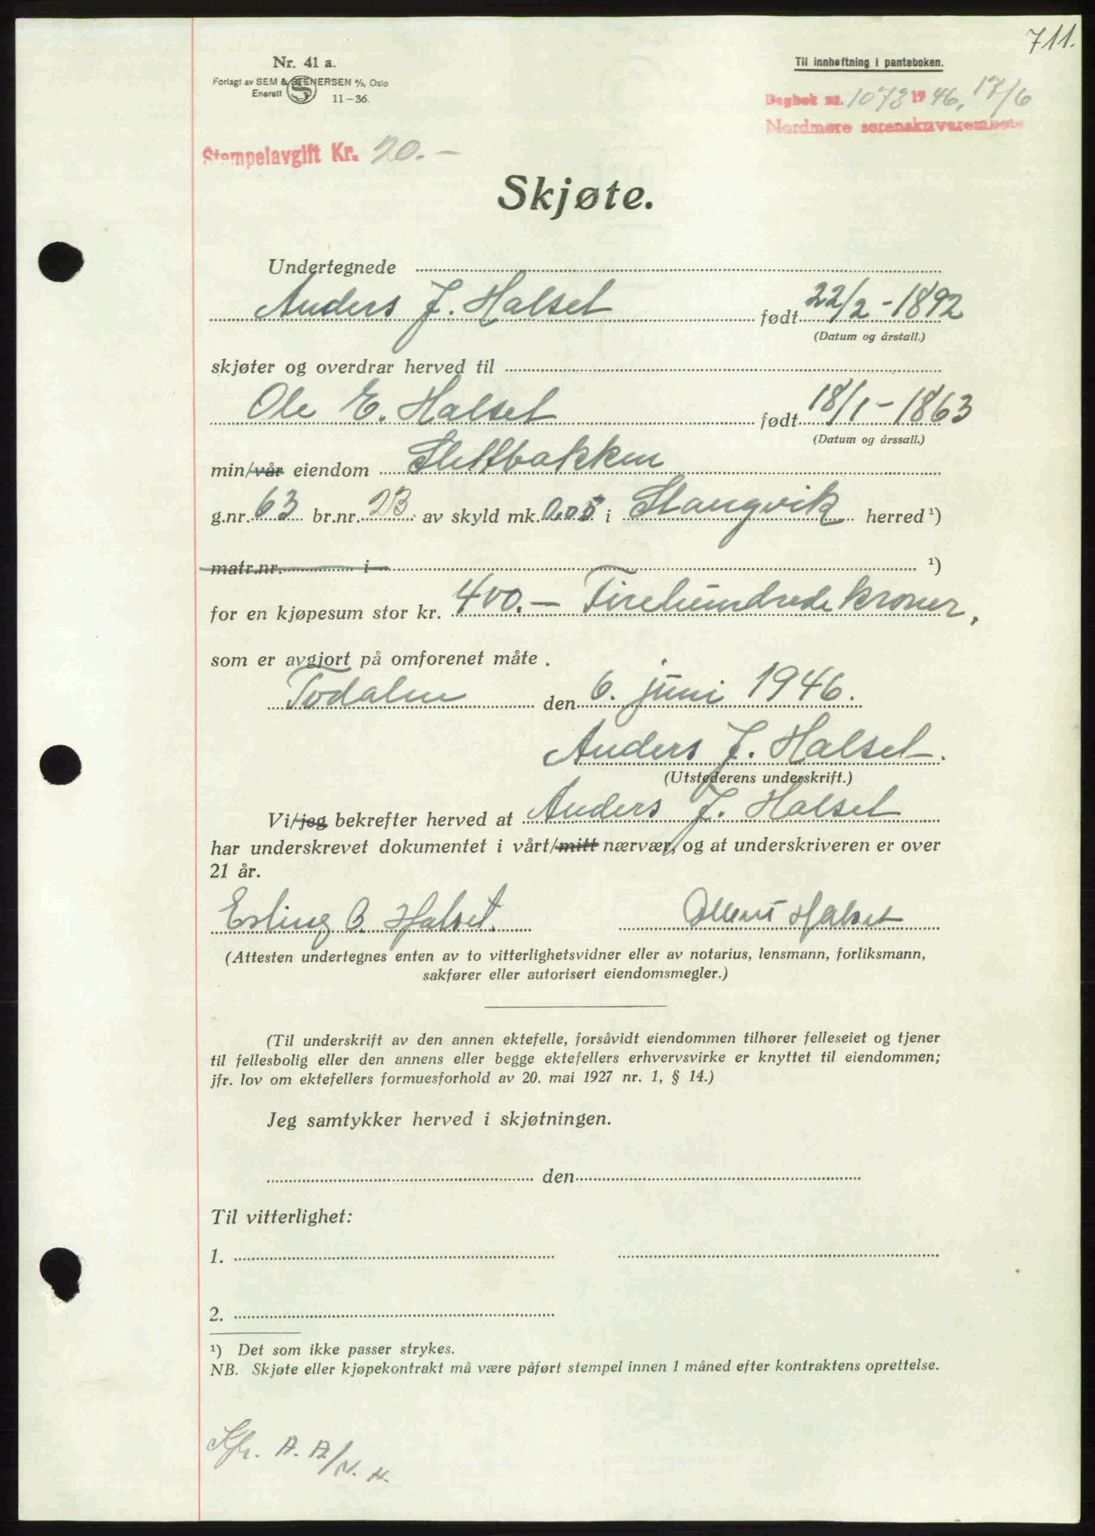 711.
Nr. 41 a.
Forlagt av SEM & STENERSEN A/S, Oslo
Enerett 11-36.
Til innheftning i panteboken.
Dagbok nr. 1073 1946, 17/6
Nordmøre sorenskriverembete
Stempelavgift Kr. 20.—
Skjøte.
Undertegnede
Anders J. Halset født 22/2 - 1892
(Datum og årstall.)
skjøter og overdrar herved til
Ole E. Halset født 18/1 - 1863
(Datum og årssall.)
min/vår eiendom Slettbakken
g.nr. 63 br.nr. 23 av skyld mk. 0,05 i Stangvik herred ¹)
matr.nr. i ¹)
for en kjøpesum stor kr. 400.— Firehundrede kroner,
som er avgjort på omforenet måte.
Todalen den 6. juni 1946.
Anders J. Halset.
(Utstederens underskrift.)
Vi/jeg bekrefter herved at Anders J. Halset
har underskrevet dokumentet i vårt/mitt nærvær, og at underskriveren er over
21 år.
Erling O. Halset. Halset
(Attesten undertegnes enten av to vitterlighetsvidner eller av notarius, lensmann, forliksmann,
sakfører eller autorisert eiendomsmegler.)
(Til underskrift av den annen ektefelle, forsåvidt eiendommen tilhører felleseiet og tjener
til fellesbolig eller den annens eller begge ektefellers erhvervsvirke er knyttet til eiendommen;
jfr. lov om ektefellers formuesforhold av 20. mai 1927 nr. 1, § 14.)
Jeg samtykker herved i skjøtningen.
den
Til vitterlighet:
1.
2.
¹) Det som ikke passer strykes.
NB. Skjøte eller kjøpekontrakt må være påført stempel innen 1 måned efter kontraktens oprettelse.